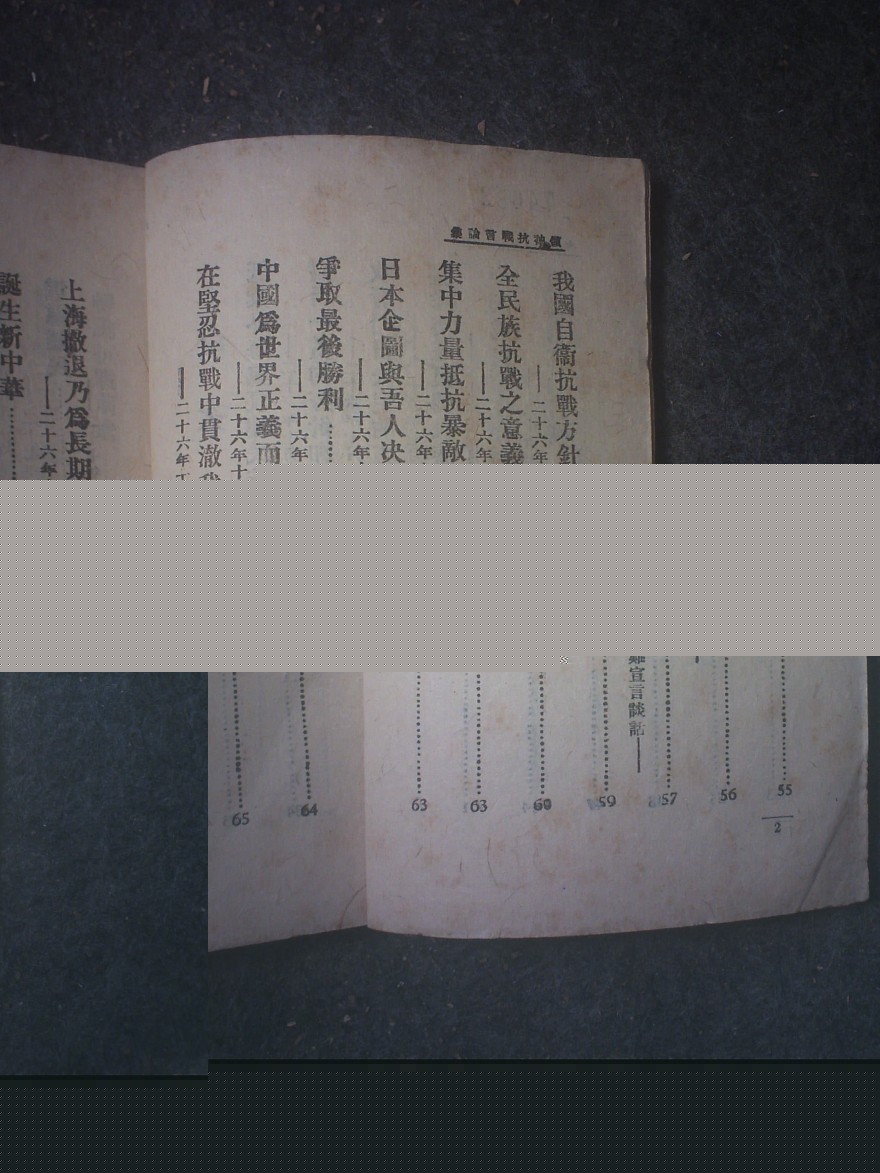 領袖抗戰言論集
我國自衞抗戰方針
——二十六年
全民族抗戰之意義
——二十六年
集中力量抵抗暴敵
——二十六年
日本企圖與吾人决
——二十六年
爭取最後勝利……
——二十六年
中國爲世界正義而
——二十六年十
在堅忍抗戰中貫澈
——二十六年
上海撤退乃爲長期
——二十六年
誕生新中華…………
…………55
…………56
宣言談話——
…………57
…………59
…………60
…………63
…………63
…………64
…………65
2